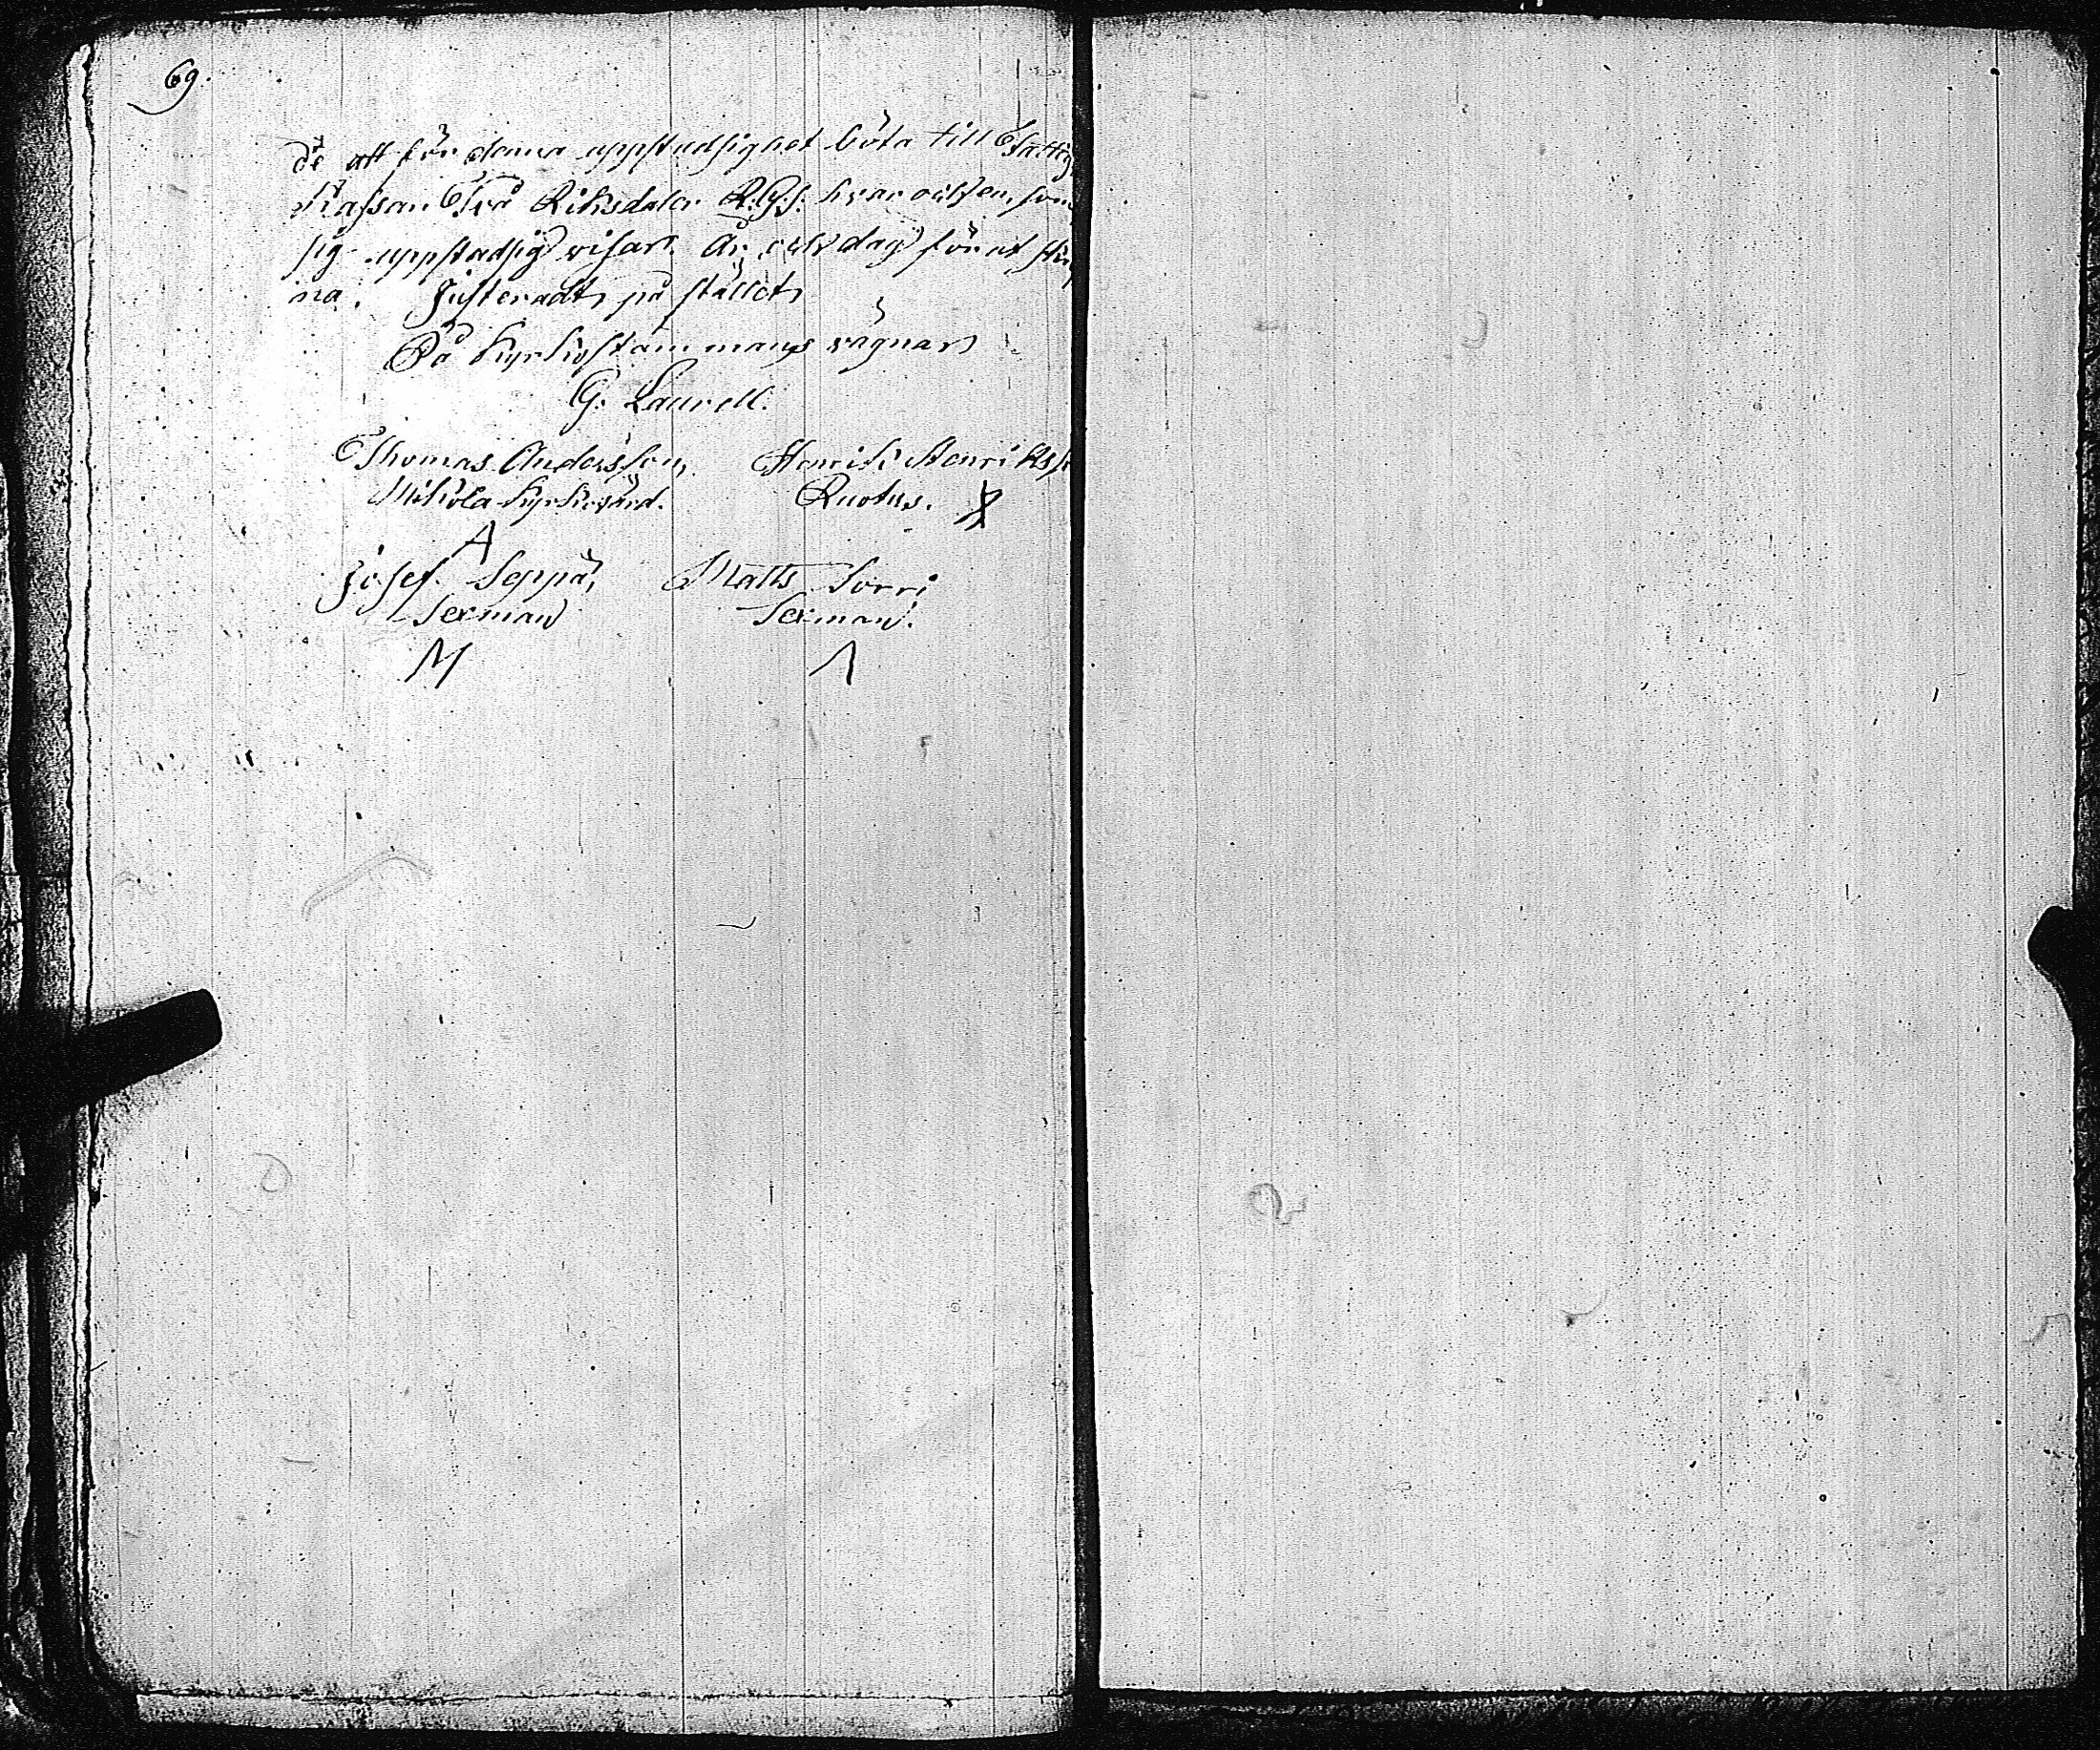 69.
de att för denna uppstudsighet böta till Fattig
Kassan Två Riksdaler R.G.s. hvar och en, som
sig uppstudsig visar. År och dag förut skrif
na. Justeradt på stället
På Kyrkiostämmans vägnar
G. Laurell.
Thomas Andersson, Henrik Henriksso
Mikola Kyrkiovärd. Ruotus. X
A
Josef Seppä, Matts Sorri
Sexman Sexman.
M Λ